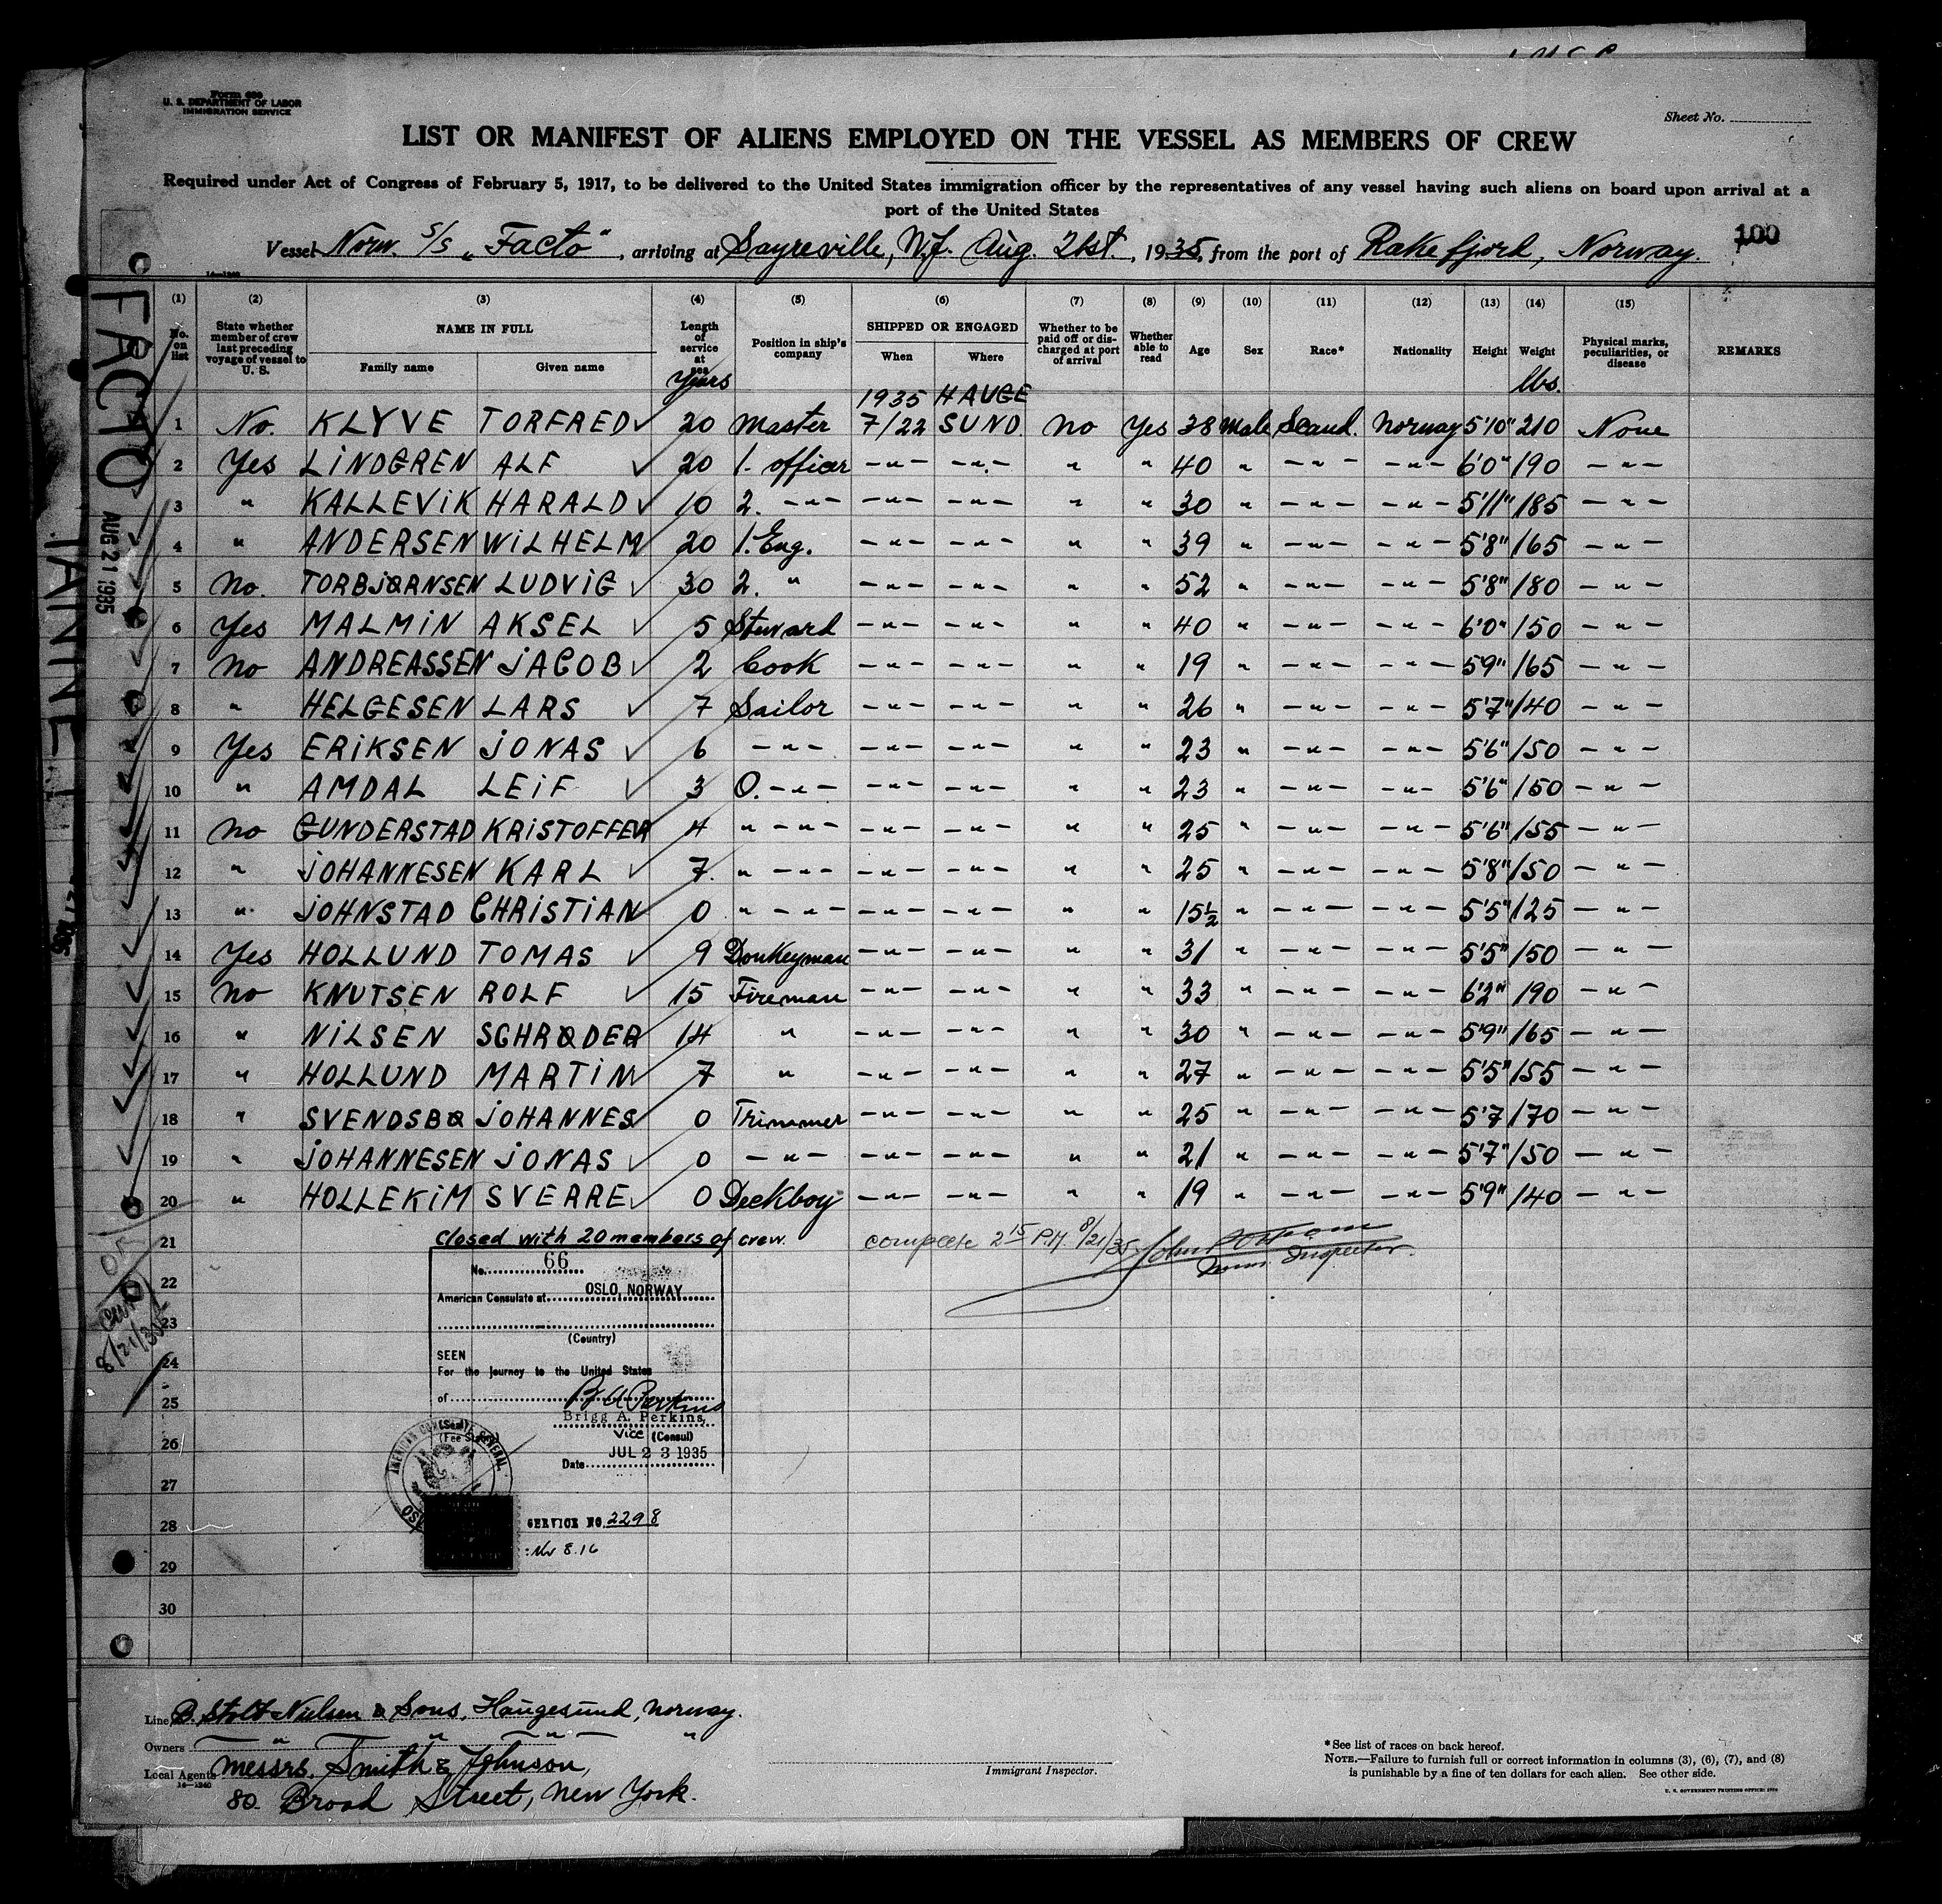 Form 680
U. S. DEPARTMENT OF LABOR
IMMIGRATION SERVICE
Sheet No.
LIST OR MANIFEST OF ALIENS EMPLOYED ON THE VESSEL AS MEMBERS OF CREW
Required under Act of Congress of February 5, 1917, to be delivered to the United States immigration officer by the representatives of any vessel having such aliens on board upon arrival at a
port of the United States
100
Vessel Norw. S/S „Facto“, arriving at Sayreville, N.J. Aug. 21st., 1935, from the port of Rakefjord, Norway.
(1) (2) (3) (4) (5) (6) (7) (8) (9) (10) (11) (12) (13) (14) (15)
No. on list State whether member of crew last preceding voyage of vessel to U. S. NAME IN FULL Family name Given name Length of service at sea Position in ship's company SHIPPED OR ENGAGED When Where Whether to be paid off or discharged at port of arrival Whether able to read Age Sex Race* Nationality Height Weight Physical marks, peculiarities, or disease REMARKS
Years 1935 HAUGE lbs.
1 No. KLYVE TORFRED 20 Master 7/22 SUND. No Yes 38 Male Scand. Norway 5'10" 210 None
2 Yes LINDGREN ALF 20 1. officer -"- -"- " " 40 " -"- -"- 6'0" 190 -"-
3 " KALLEVIK HARALD 10 2. -"- -"- -"- " " 30 " -"- -"- 5'11" 185 -"-
4 " ANDERSEN WILHELM 20 1. Eng. -"- -"- " " 39 " -"- -"- 5'8" 165 -"-
5 No. TORBJØRNSEN LUDVIG 30 2. " -"- -"- " " 52 " -"- -"- 5'8" 180 -"-
6 Yes MALMIN AKSEL 5 Steward -"- -"- " " 40 " -"- -"- 6'0" 150 -"-
7 No ANDREASSEN JACOB 2 Cook -"- -"- " " 19 " -"- -"- 5'9" 165 -"-
8 " HELGESEN LARS 7 Sailor -"- -"- " " 26 " -"- -"- 5'7" 140 -"-
9 Yes ERIKSEN JONAS 6 -"- -"- -"- " " 23 " -"- -"- 5'6" 150 -"-
10 " AMDAL LEIF 3 O. -"- -"- -"- " " 23 " -"- -"- 5'6" 150 -"-
11 No GUNDERSTAD KRISTOFFER 4 " -"- -"- -"- " " 25 " -"- -"- 5'6" 155 -"-
12 " JOHANNESEN KARL 7. " -"- -"- -"- " " 25 " -"- -"- 5'8" 150 -"-
13 " JOHNSTAD CHRISTIAN 0 " -"- -"- -"- " " 15½ " -"- -"- 5'5" 125 -"-
14 Yes HOLLUND TOMAS 9 Donkeyman -"- -"- " " 31 " -"- -"- 5'5" 150 -"-
15 No KNUTSEN ROLF 15 Fireman -"- -"- " " 33 " -"- -"- 6'2" 190 -"-
16 " NILSEN SCHRØDER 14 " -"- -"- " " 30 " -"- -"- 5'9" 165 -"-
17 " HOLLUND MARTIN 7 " -"- -"- " " 27 " -"- -"- 5'5" 155 -"-
18 " SVENDSBØ JOHANNES 0 Trimmer -"- -"- " " 25 " -"- -"- 5'7 170 -"-
19 " JOHANNESEN JONAS 0 -"- -"- -"- " " 21 " -"- -"- 5'7" 150 -"-
20 " HOLLEKIM SVERRE 0 Deckboy -"- -"- " " 19 " -"- -"- 5'9" 140 -"-
21 Closed with 20 members of crew. complete 2 15 P.M. 8/21/35
Inspector.
22
23
24
25
26
27
28
29
30
No. 66
American Consulate at OSLO, NORWAY
(Country)
SEEN
For the journey to the United States
of B A Perkins
Brigg A. Perkins,
Vice (Consul)
Date JUL 23 1935
(Seal)
(Fee Stamp)
AMERICAN CONSULATE GENERAL
SERVICE NO. 2298
FACTO
AUG 21 1935
8/21/35
Line B. Stolt-Nielsen & Sons, Haugesund, Norway.
Owners " " -"- "
Local Agents Messrs. Smith & Johnson,
80. Broad Street, New York.
16—1240
Immigrant Inspector.
*See list of races on back hereof.
NOTE.—Failure to furnish full or correct information in columns (3), (6), (7), and (8)
is punishable by a fine of ten dollars for each alien. See other side.